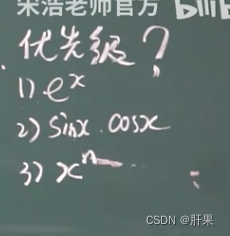 宋浩老师官方 bilib
优先级？
1) eˣ
2) sinx . cosx
3) xⁿ
CSDN @肝果